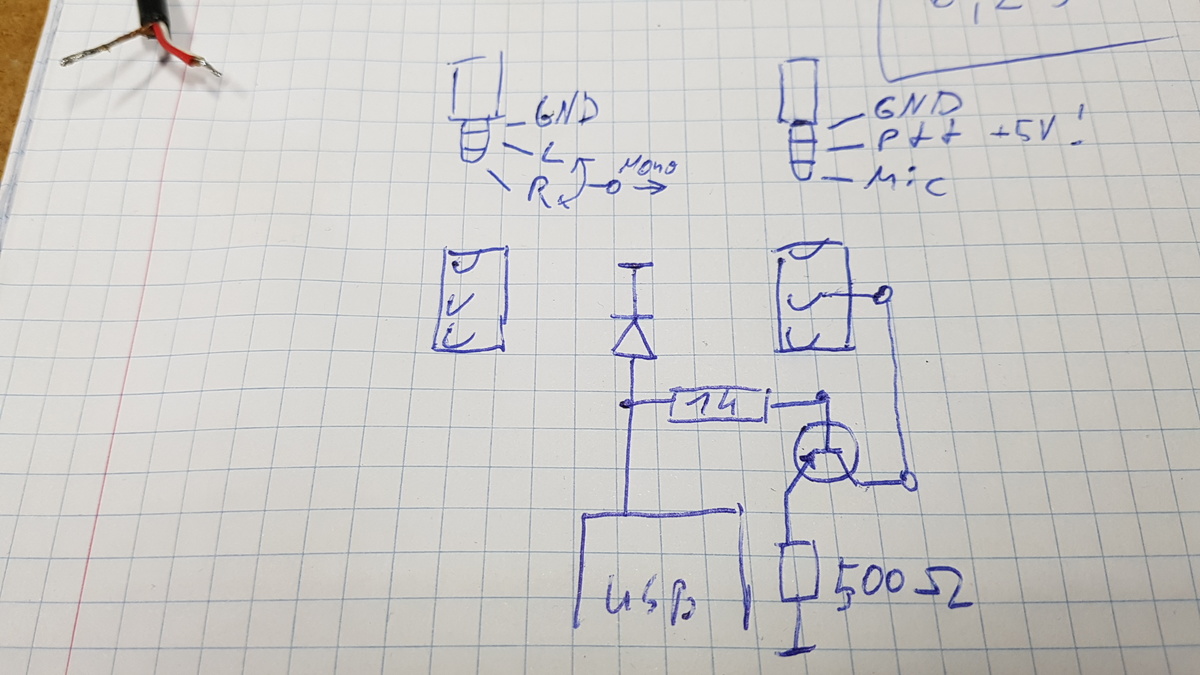 GND
L
R
Mono
GND
Ptt +5V!
Mic
14
USB
500Ω